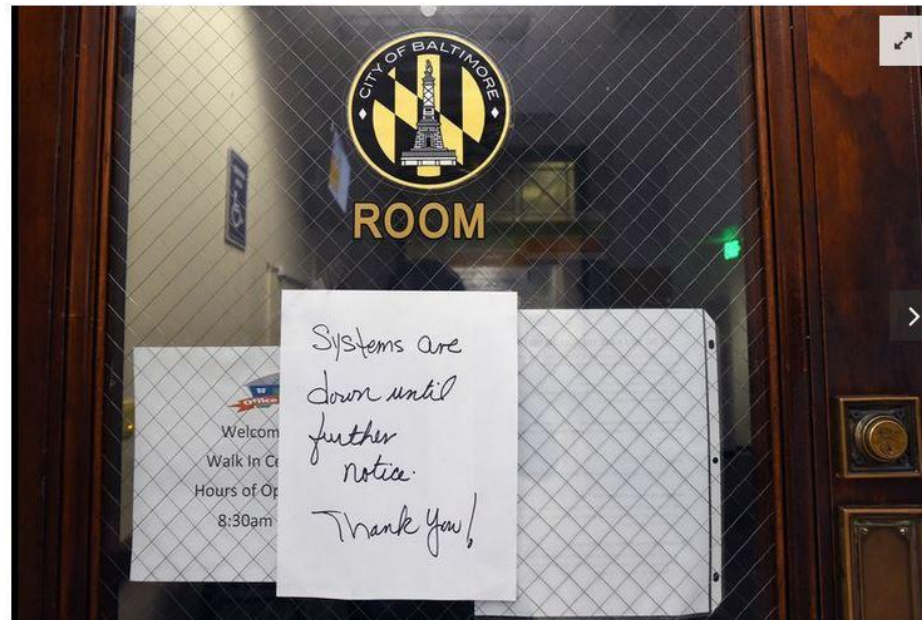 CITY OF BALTIMORE
ROOM
Office
Welcom
Walk In Ce
Hours of Op
8:30am
Systems are
down until
further
notice.
Thank You!